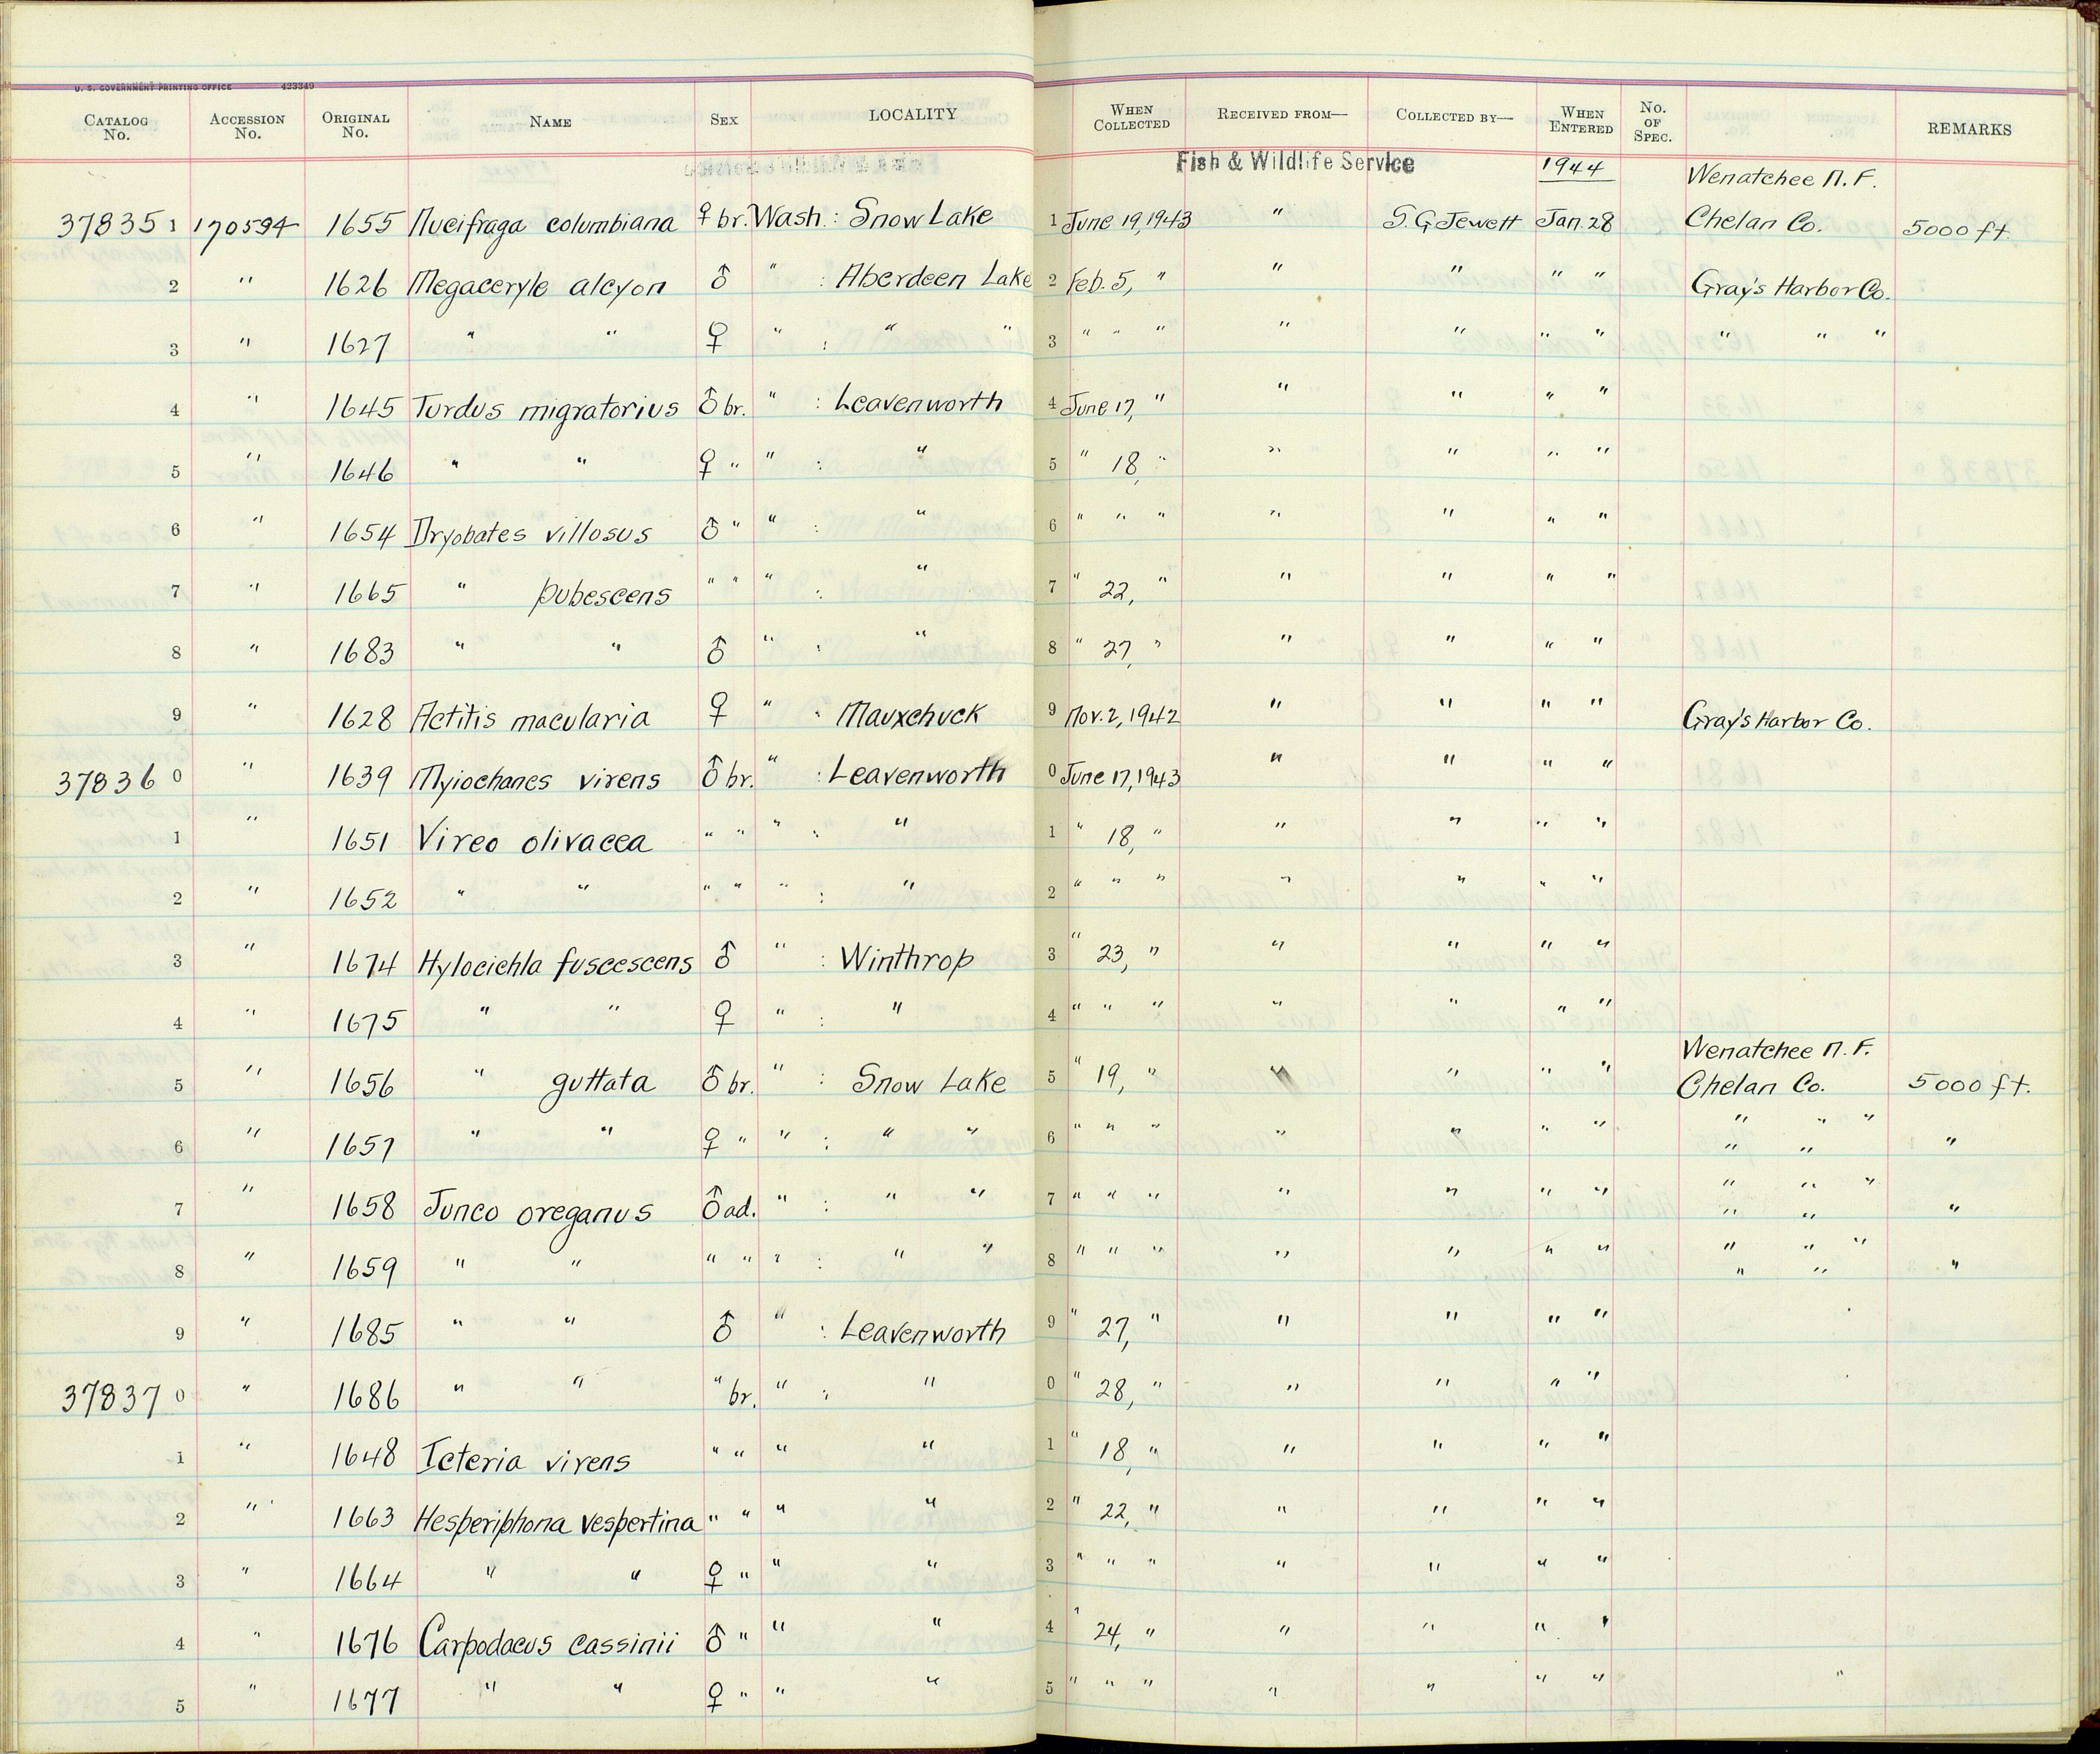 U. S. GOVERNMENT PRINTING OFFICE 423349
CATALOG No. ACCESSION No. ORIGINAL No. NAME SEX LOCALITY WHEN COLLECTED RECEIVED FROM— COLLECTED BY— WHEN ENTERED No. OF SPEC. REMARKS
Fish & Wildlife Service 1944 Wenatchee N. F.
37835 1 170594 1655 Nucifraga columbiana ♀ br. Wash. : Snow Lake 1 June 19, 1943 " S. G. Jewett Jan. 28 Chelan Co. 5000 ft.
2 " 1626 Megaceryle alcyon ♂ " : Aberdeen Lake 2 Feb. 5, " " " " " Gray's Harbor Co.
3 " 1627 " " ♀ " : " " 3 " " " " " " " " " "
4 " 1645 Turdus migratorius ♂ br. " : Leavenworth 4 June 17, " " " " "
5 " 1646 " " ♀ " " : " 5 " 18, " " " " "
6 " 1654 Dryobates villosus ♂ " " : " 6 " " " " " " "
7 " 1665 " pubescens " " " : " 7 " 22, " " " " "
8 " 1683 " " ♂ " : " 8 " 27, " " " " "
9 " 1628 Actitis macularia ♀ " : Mauxchuck 9 Nov. 2, 1942 " " " " Gray's Harbor Co.
37836 0 " 1639 Myiochanes virens ♂ br. " : Leavenworth 0 June 17, 1943 " " " "
1 " 1651 Vireo olivacea " " " : " 1 " 18, " " " " "
2 " 1652 " " " " " : " 2 " " " " " " "
3 " 1674 Hylocichla fuscescens ♂ " : Winthrop 3 " 23, " " " " "
4 " 1675 " " ♀ " : " 4 " " " " " " "
Wenatchee N. F.
5 " 1656 " guttata ♂ br. " : Snow Lake 5 " 19, " " " " " Chelan Co. 5000 ft.
" " "
6 " 1657 " " ♀ " " : " " 6 " " " " " " " " " "
" " "
7 " 1658 Junco oreganus ♂ ad. " : " " 7 " " " " " " " " " "
" " "
8 " 1659 " " " " " : " " 8 " " " " " " " " " "
9 " 1685 " " ♂ " : Leavenworth 9 " 27, " " " " "
37837 0 " 1686 " " " br. " : " 0 " 28, " " " " "
1 " 1648 Icteria virens " " " " 1 " 18, " " " " "
2 " 1663 Hesperiphona vespertina " " " " 2 " 22, " " " " "
3 " 1664 " " ♀ " " " 3 " " " " " " "
4 " 1676 Carpodacus cassinii ♂ " " " 4 " 24, " " " " "
5 " 1677 " " ♀ " " " 5 " " " " " " " "